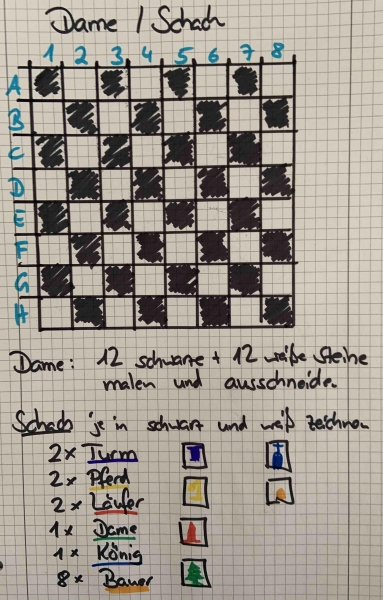 Dame / Schach
1 2 3 4 5 6 7 8
A
B
C
D
E
F
G
H
Dame: 12 schwarze + 12 weiße Steine
malen und ausschneide.
Schach je in schwarz und weiß zeichnen
2x Turm
2x Pferd
2x Läufer
1x Dame
1x König
8x Bauer